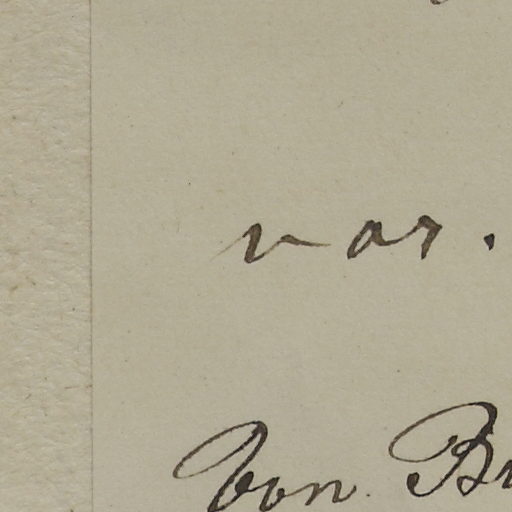 var.
Von B